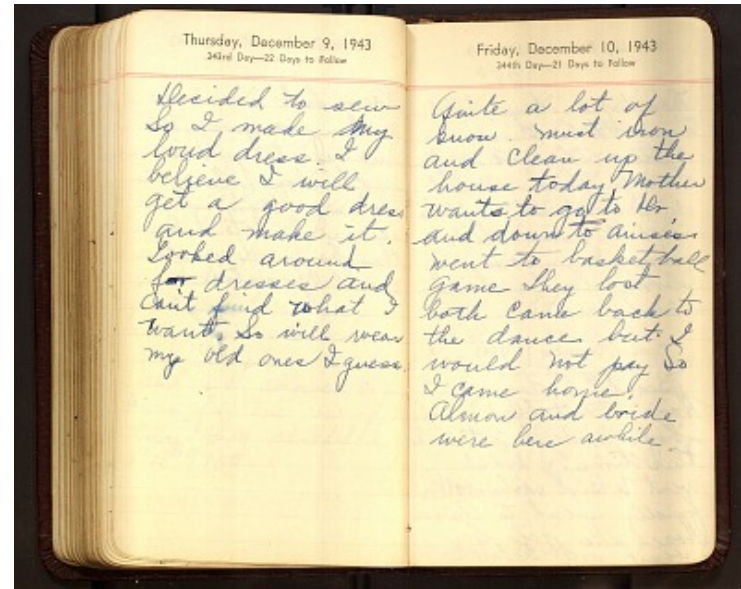 Thursday, December 9, 1943
343rd Day—22 Days to Follow
Decided to sew
So I made my
loud dress. I
believe I will
get a good dress
and make it.
Looked around
for dresses and
can't find what I
want. So will wear
my old ones I guess.
Friday, December 10, 1943
344th Day—21 Days to Follow
Quite a lot of
snow. Must iron
and clean up the
house today. Mother
wants to go to Dr
and down to
went to basketball
game they lost
both came back to
the dance but I
would not pay So
I came home.
Almon and bride
were here awhile